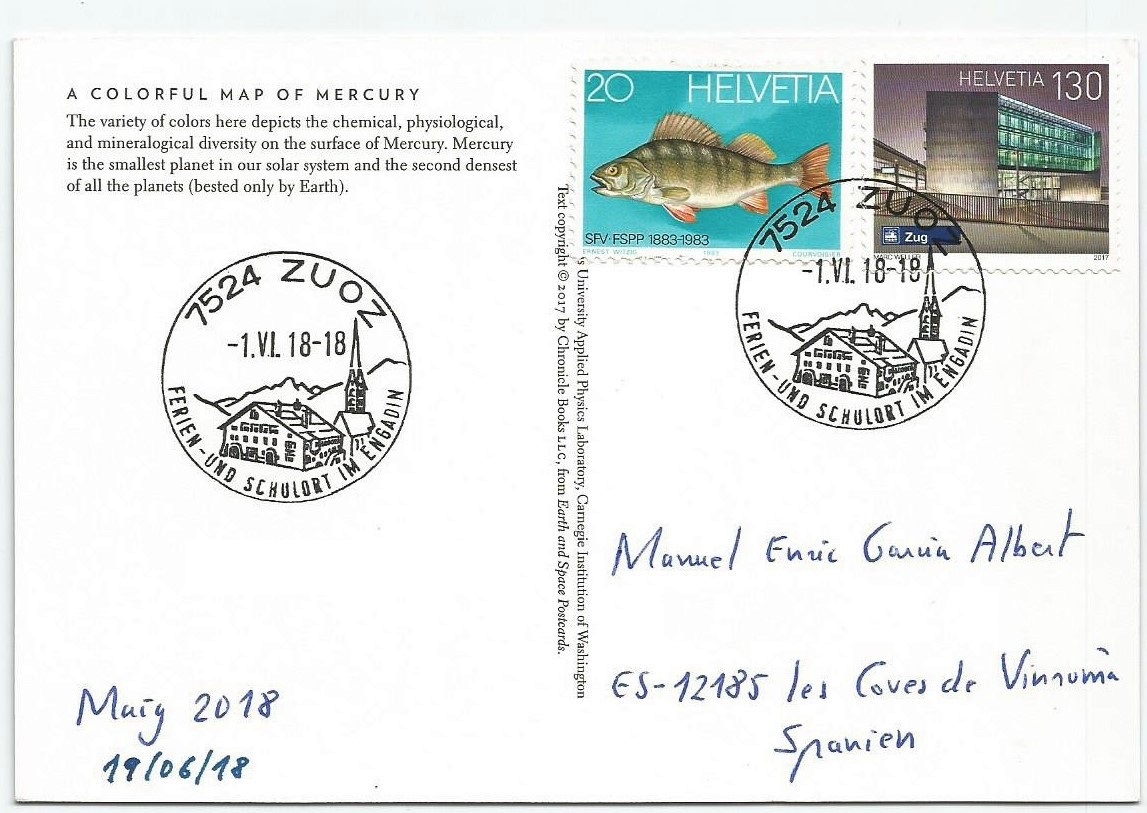 A COLORFUL MAP OF MERCURY
The variety of colors here depicts the chemical, physiological,
and mineralogical diversity on the surface of Mercury. Mercury
is the smallest planet in our solar system and the second densest
of all the planets (bested only by Earth).
7524 ZUOZ
-1.VI. 18-18
FERIEN-UND SCHULORT IM ENGADIN
Maig 2018
19/06/18
's University Applied Physics Laboratory, Carnegie Institution of Washington
Text copyright © 2017 by Chronicle Books LLC, from Earth and Space Postcards.
20 HELVETIA
SFV-FSPP 1883-1983
ERNEST WITZIG 1983 COURVOISIER
HELVETIA 130
Zug
MARC WELLER 2017
7524 ZUOZ
-1.VI. 18-18
FERIEN-UND SCHULORT IM ENGADIN
Manuel Enric Garcia Albert
ES-12185 les Coves de Vinromà
Spanien